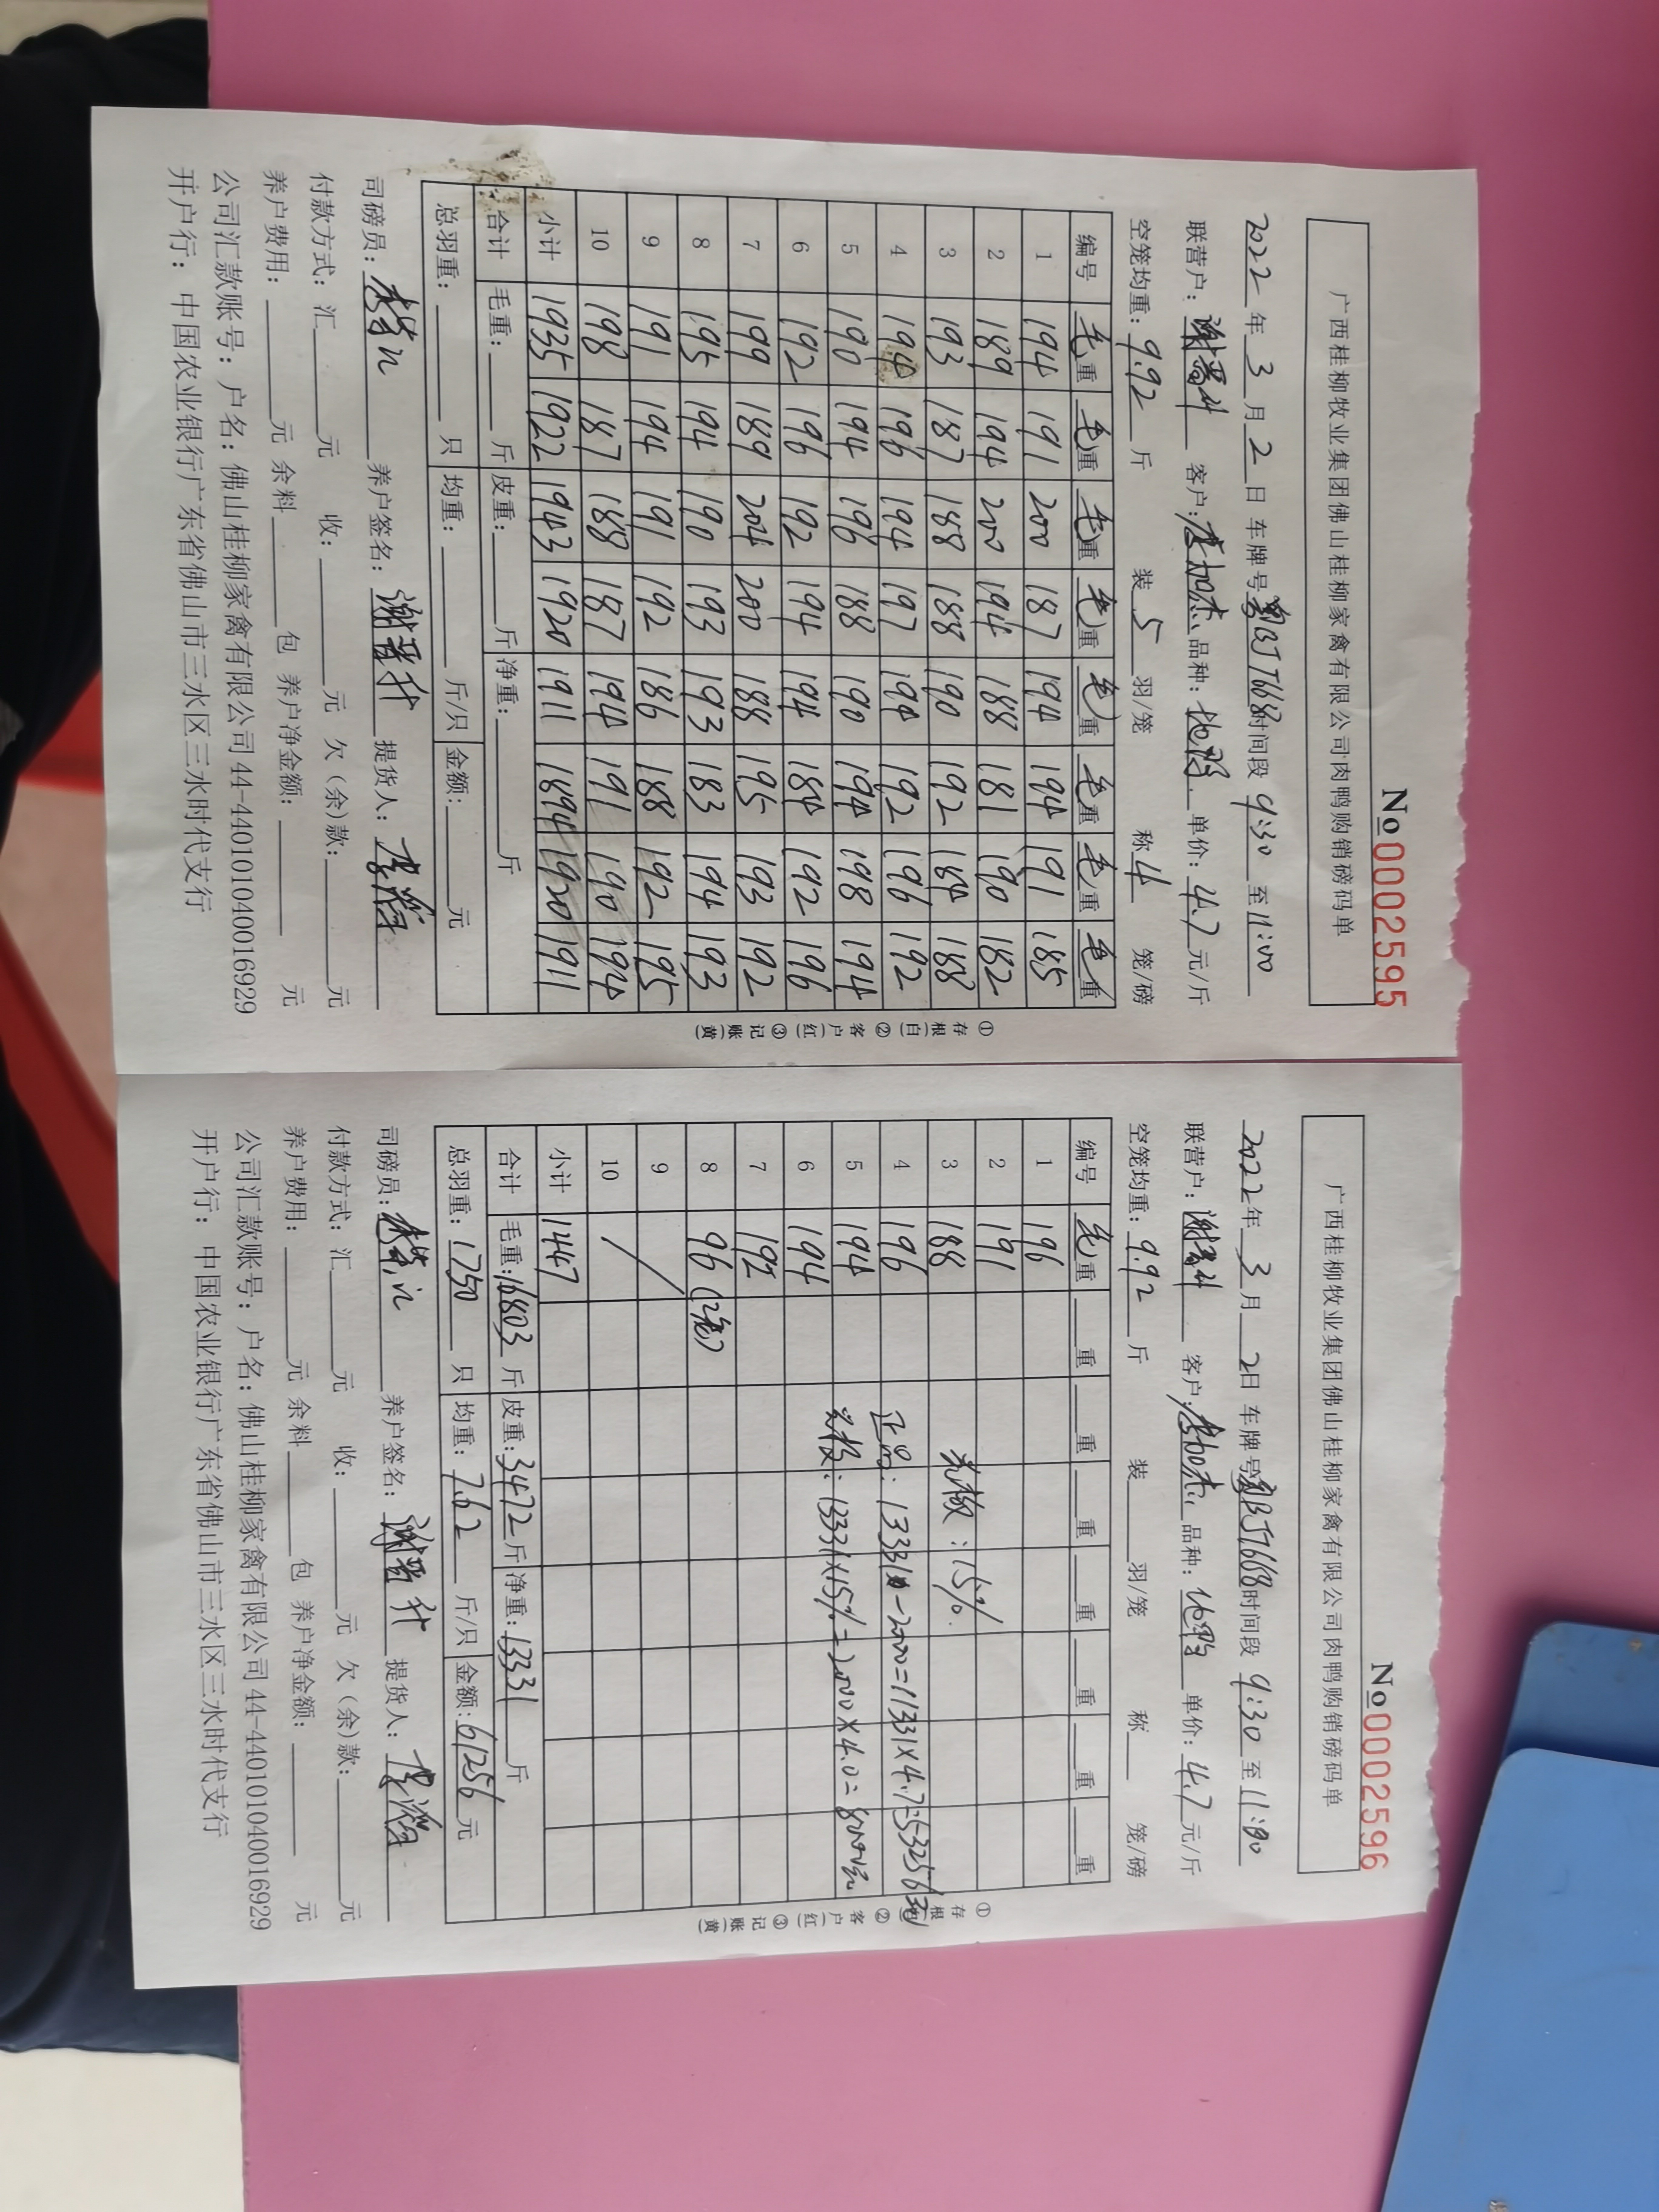 No 00002595
广西桂柳牧业集团佛山桂柳家禽有限公司肉鸭购销磅码单
2022年3月2日 车牌号粤BJT668时间段 9:30 至 11:00
联营户: 谢晋升 客户: 加杰 品种: 地鸭 单价: 4.7元/斤
空笼均重: 9.92斤 装5羽/笼 称4笼/磅
编号 毛重 毛重 毛重 毛重 毛重 毛重 毛重 毛重
1 194 191 200 187 194 194 191 185
2 189 194 200 194 188 181 190 182
3 193 187 188 188 190 192 184 188
4 194 196 194 197 194 192 196 192
5 190 194 196 188 190 194 198 194
6 192 196 192 194 194 184 192 196
7 199 189 204 200 188 195 193 192
8 195 194 190 193 193 183 194 193
9 191 194 191 192 186 188 192 195
10 198 187 188 187 194 191 190 194
小计 1935 1922 1943 1920 1911 1894 1920 1911
合计 毛重: 斤 皮重: 斤 净重: 斤
总羽重: 只 均重: 斤/只 金额: 元
司磅员: 养户签名: 谢晋升 提货人:
付款方式: 汇 元 收: 元 欠(余)款: 元
养户费用: 元 余料 包 养户净金额: 元
公司汇款账号: 户名: 佛山桂柳家禽有限公司 44-440101040016929
开户行: 中国农业银行广东省佛山市三水区三水时代支行
①存根(白)②客户(红)③记账(黄)
No 00002596
广西桂柳牧业集团佛山桂柳家禽有限公司肉鸭购销磅码单
2022年3月2日 车牌号粤BJT668时间段 9:30 至 11:00
联营户: 谢晋升 客户: 加杰 品种: 地鸭 单价: 4.7元/斤
空笼均重: 9.92斤 装 羽/笼 称 笼/磅
编号 毛重 重 重 重 重 重 重 重
1 196
2 191
3 188 15%
4 196 正品: 13331-2000=11331×4.7=53256元
5 194 13331×15%=2000×4.0=8000元
6 194
7 192
8 96 (2笼)
9
10
小计 1447
合计 毛重: 16803斤 皮重: 3472斤 净重: 13331斤
总羽重: 1750只 均重: 7.62斤/只 金额: 61256元
司磅员: 养户签名: 谢晋升 提货人:
付款方式: 汇 元 收: 元 欠(余)款: 元
养户费用: 元 余料 包 养户净金额: 元
公司汇款账号: 户名: 佛山桂柳家禽有限公司 44-440101040016929
开户行: 中国农业银行广东省佛山市三水区三水时代支行
①存根(白)②客户(红)③记账(黄)